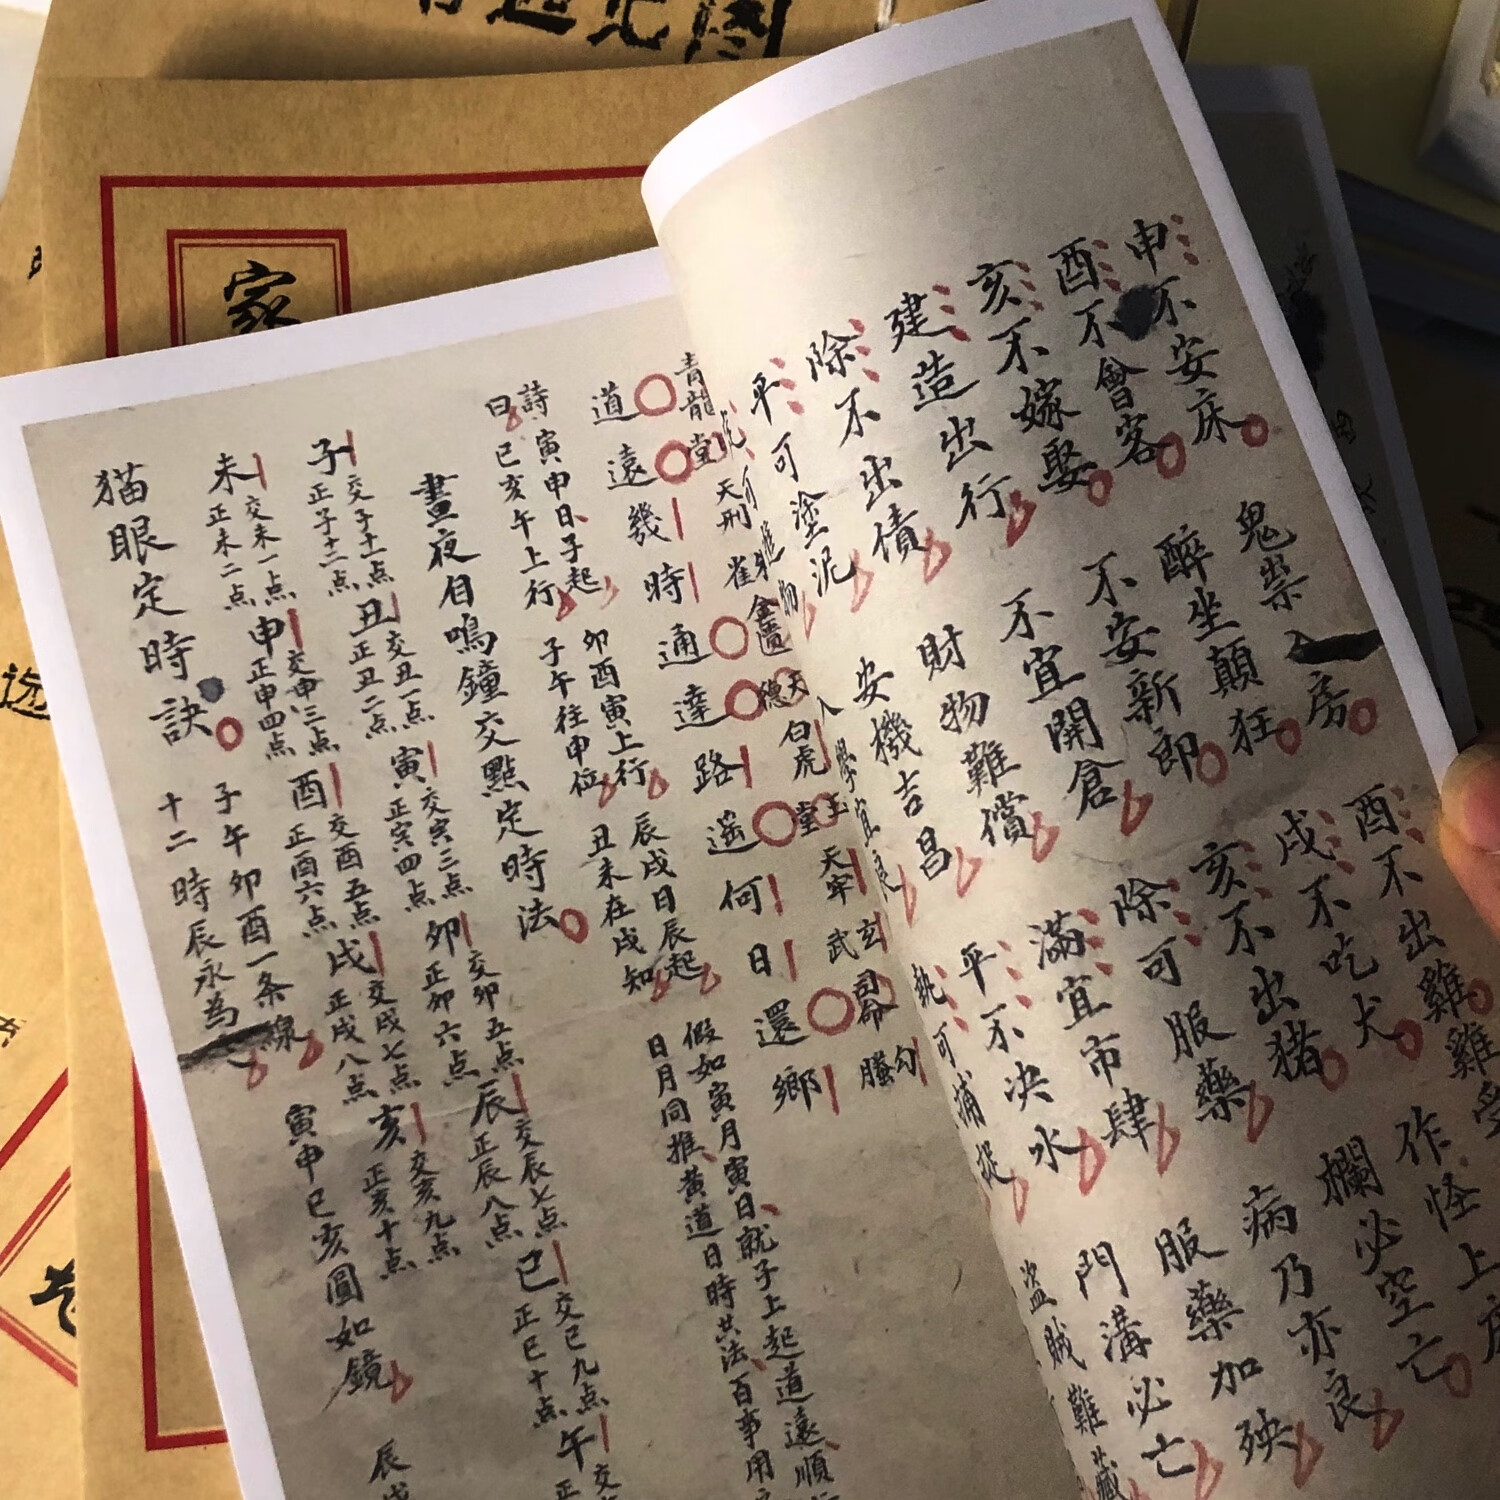 申不安床 鬼祟 房
酉不會客 醉坐顛狂
亥不嫁娶 不安新郎
建造出行 不宜開倉
除不出債 財物難償
平可塗泥 安機吉昌
酉不出雞 雞
戌不吃犬 作怪上床
亥不出猪 欄必空亡
除可服藥 病乃亦良
滿宜市肆 服藥加殃
平不決水 門溝必亡
執可捕捉 盜賊難藏
青龍 堂 天刑 雀 金匱 天德 白虎 玉堂 天牢 玄武 司命 勾
道遠幾時通達路遙何日還鄉
詩曰 寅申日子起 巳亥午上行 卯酉寅上行 子午往申位 辰戌日辰起 丑未在戌知
假如寅月寅日就子上起道遠順
日月同推黃道日時共法百事用
晝夜自鳴鐘交點定時法
子 交子十一点 正子十二点 丑 交丑一点 正丑二点 寅 交寅三点 正寅四点 卯 交卯五点 正卯六点 辰 交辰七点 正辰八点 巳 交巳九点 正巳十点 午 交 正
未 交未一点 正未二点 申 交申三点 正申四点 酉 交酉五点 正酉六点 戌 交戌七点 正戌八点 亥 交亥九点 正亥十点
猫眼定時訣 子午卯酉一条線 寅申巳亥圓如鏡 辰戌
十二時辰永為
家